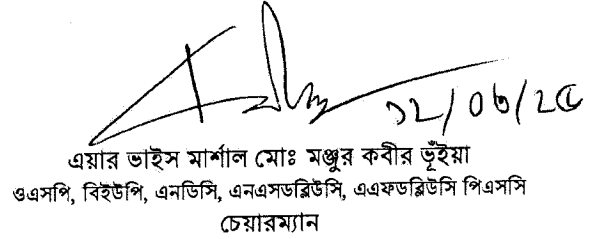 ১২/০৬/২৫
এয়ার ভাইস মার্শাল মোঃ মঞ্জুর কবীর ভূঁইয়া
ওএসপি, বিইউপি, এনডিসি, এনএসডব্লিউসি, এএফডব্লিউসি পিএসসি
চেয়ারম্যান